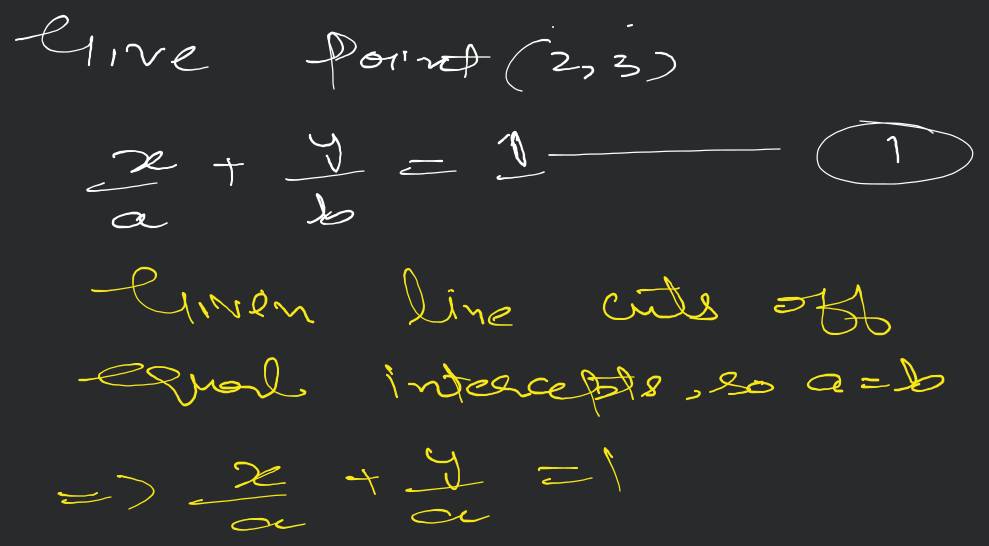 Give Point (2,3)
x/a + y/b = 1 ——— 1
Given line cuts off
equal intercepts, so a=b
=> x/a + y/a = 1